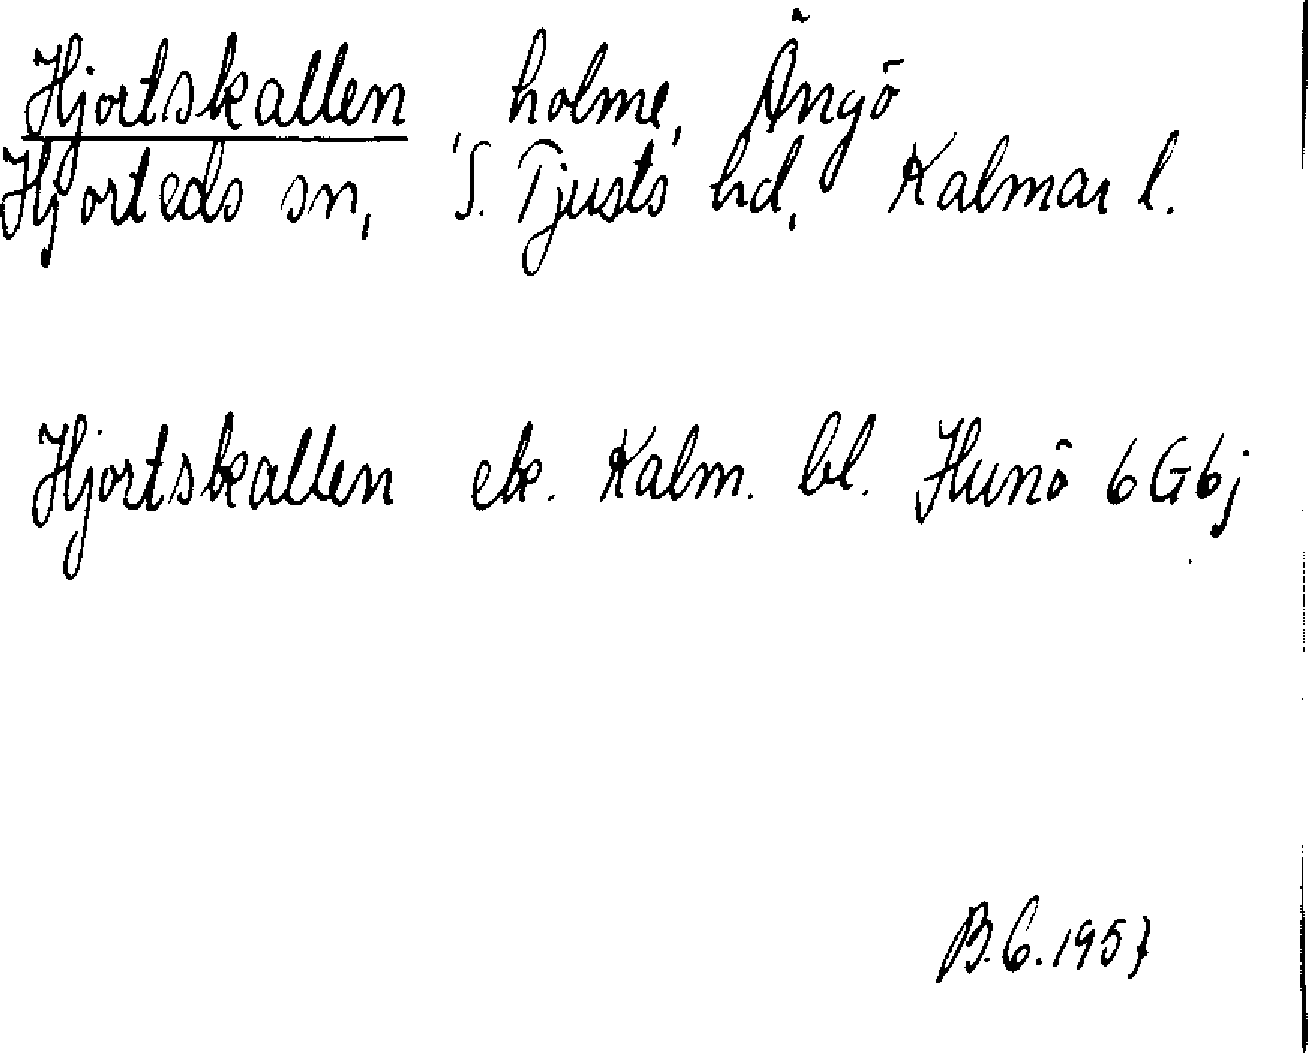 Hjortskallen, holme, Ängö
Hjorteds sn, S. Tjusts hd, Kalmar l.
Hjortskallen ek. Kalm. bl. Hunö 6G6j
B.C. 1957